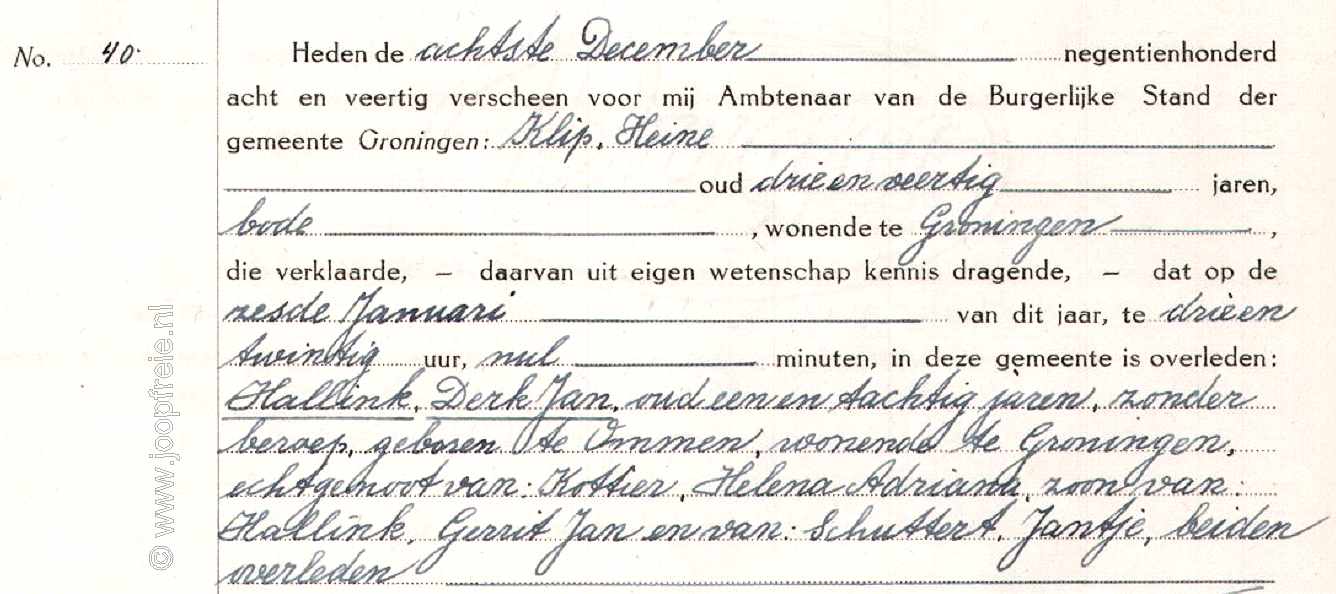 No. 40. Heden de achtste December negentienhonderd
acht en veertig verscheen voor mij Ambtenaar van de Burgerlijke Stand der
gemeente Groningen: Klip, Heine
oud drie en veertig jaren,
bode , wonende te Groningen ,
die verklaarde, — daarvan uit eigen wetenschap kennis dragende, — dat op de
zesde Januari van dit jaar, te drie en
twintig uur, nul minuten, in deze gemeente is overleden:
Hallink, Derk Jan, oud een en tachtig jaren, zonder
beroep, geboren te Ommen, wonende te Groningen,
echtgenoot van: Kottier, Helena Adriana, zoon van:
Hallink, Gerrit Jan en van: Schuttert, Jantje, beiden
overleden
© www.joopfreie.nl